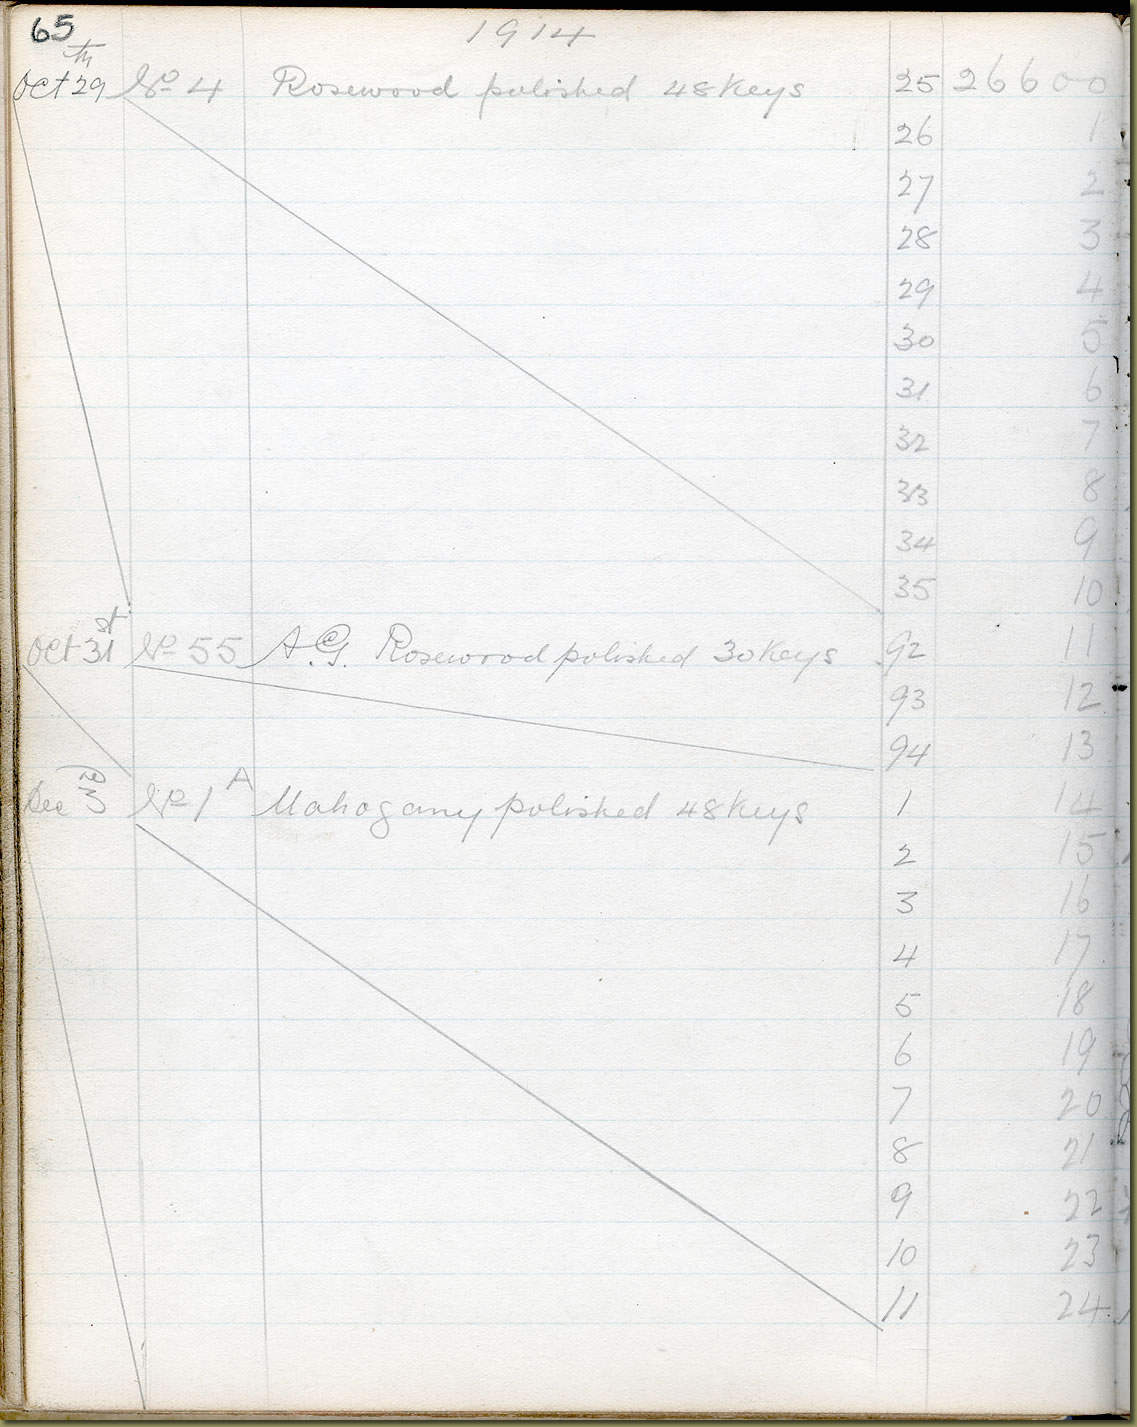 65 1914
Oct 29th No 4 Rosewood polished 48 Keys 25 26600
26 1
27 2
28 3
29 4
30 5
31 6
32 7
33 8
34 9
35 10
Oct 31st No 55 A.G. Rosewood polished 30 Keys 92 11
93 12
94 13
Dec 3rd No 1A Mahogany polished 48 Keys 1 14
2 15
3 16
4 17
5 18
6 19
7 20
8 21
9 22
10 23
11 24